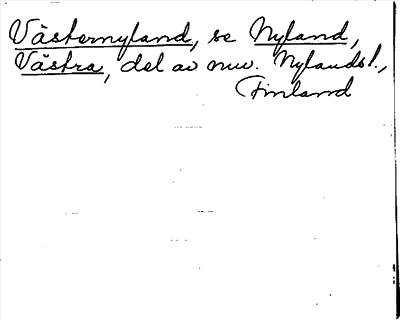 Västernyland, se Nyland,
Västra, del av nuv. Nylands l.,
Finland